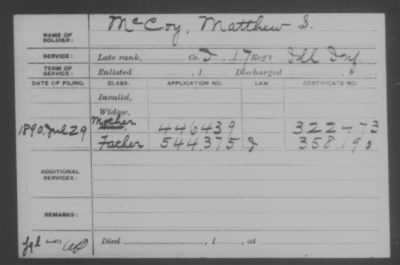 NAME OF SOLDIER: McCoy, Matthew S.
SERVICE: Late rank, Co. D, 17 Reg't Ill Inf.
TERM OF SERVICE: Enlisted , 1 Discharged , 1
DATE OF FILING. CLASS. APPLICATION NO. LAW. CERTIFICATE NO.
Invalid,
Widow,
Mother 446439 322473
1890, Jul 29 Father 544,375 J 358,190
ADDITIONAL SERVICES:
REMARKS:
Died , 1 , at